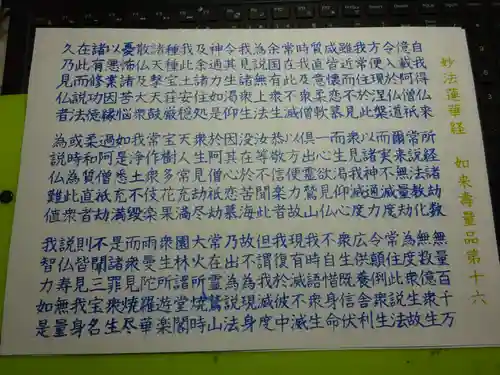 妙法蓮華経 如来寿量品第十六
自我得仏来 所経諸劫数 無量百千万
億載阿僧祇 常説法教化 無数億衆生
令入於仏道 爾来無量劫 為度衆生故
方便現涅槃 而実不滅度 常住此説法
我常住於此 以諸神通力 令顛倒衆生
雖近而不見 衆見我滅度 広供養舎利
咸皆懐恋慕 而生渇仰心 衆生既信伏
質直意柔軟 一心欲見仏 不自惜身命
時我及衆僧 倶出霊鷲山 我時語衆生
常在此不滅 以方便力故 現有滅不滅
余国有衆生 恭敬信楽者 我復於彼中
為説無上法 汝等不聞此 但謂我滅度
我見諸衆生 没在於苦海 故不為現身
令其生渇仰 因其心恋慕 乃出為説法
神通力如是 於阿僧祇劫 常在霊鷲山
及余諸住処 衆生見劫尽 大火所焼時
我此土安穏 天人常充満 園林諸堂閣
種種宝荘厳 宝樹多華果 衆生所遊楽
諸天撃天鼓 常作衆伎楽 雨曼陀羅華
散仏及大衆 我浄土不毀 而衆見焼尽
憂怖諸苦悩 如是悉充満 是諸罪衆生
以悪業因縁 過阿僧祇劫 不聞三宝名
諸有修功徳 柔和質直者 則皆見我身
在此而説法 或時為此衆 説仏寿無量
久乃見仏者 為説仏難値 我智力如是